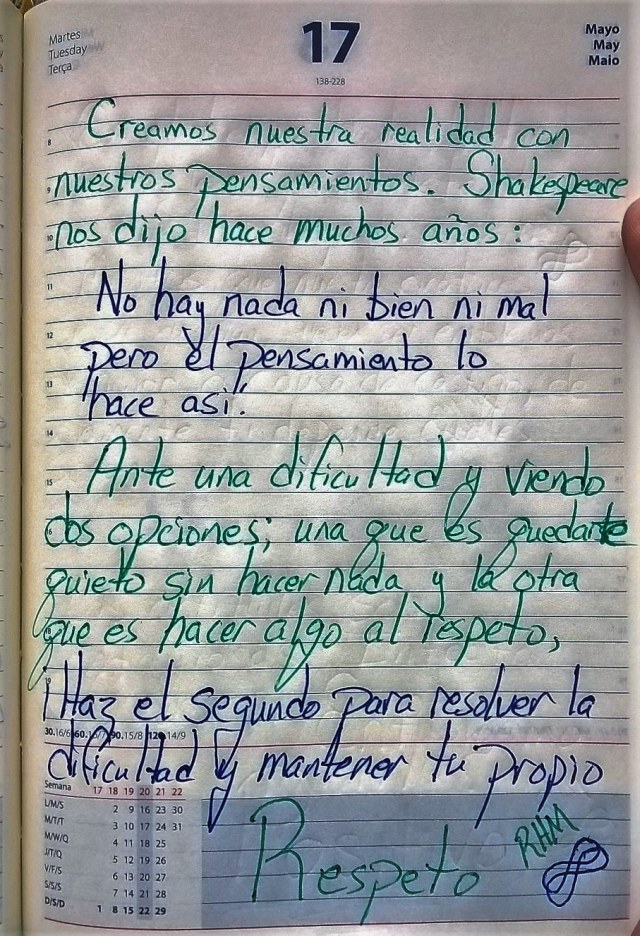 Martes
Tuesday
Terça
17
138-228
Mayo
May
Maio
Creamos nuestra realidad con
nuestros pensamientos. Shakespeare
nos dijo hace muchos años:
No hay nada ni bien ni mal
pero el pensamiento lo
hace asi".
Ante una dificultad y viendo
dos opciones; una que es quedarte
quieto sin hacer nada y la otra
que es hacer algo al respeto,
¡Haz el segundo para resolver la
30.16/6 60.16/7 90.15/8 120.14/9
dificultad y mantener tu propio
Respeto
RHM
Semana 17 18 19 20 21 22
L/M/S 2 9 16 23 30
M/T/T 3 10 17 24 31
M/W/Q 4 11 18 25
J/T/Q 5 12 19 26
V/F/S 6 13 20 27
S/S/S 7 14 21 28
D/S/D 1 8 15 22 29
8
9
10
11
12
13
14
15